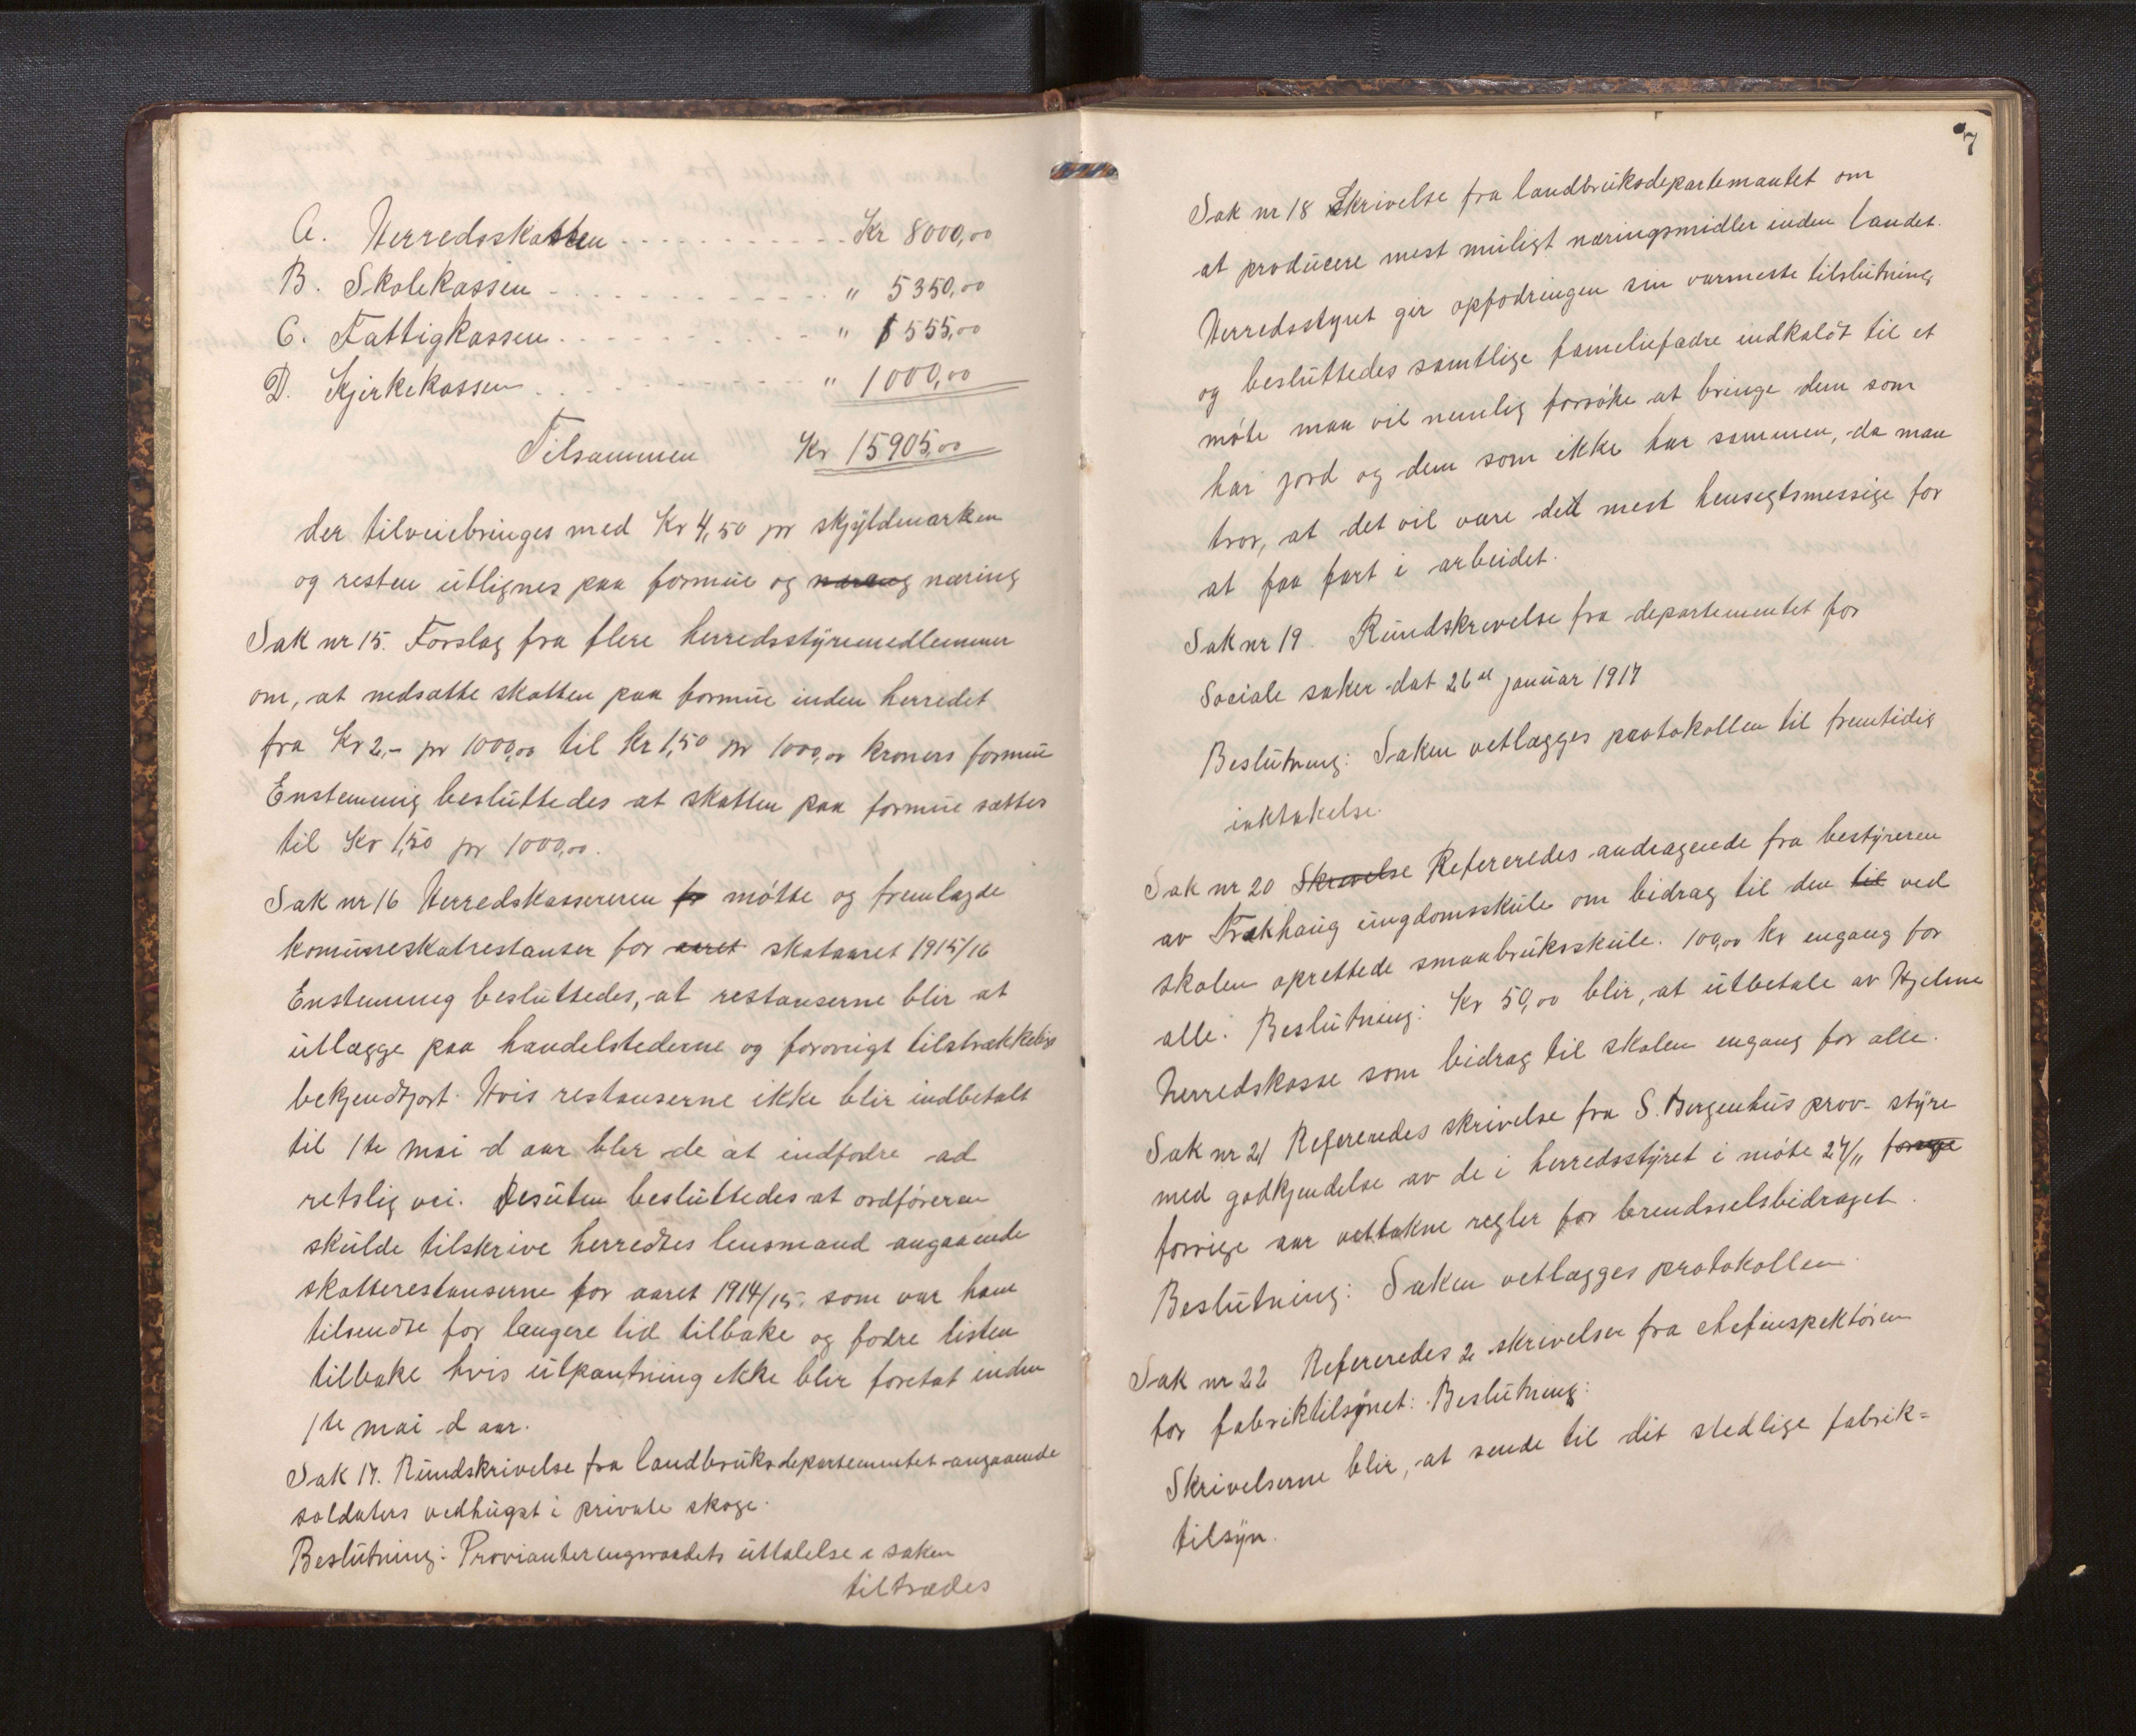 A. Herredskassen - - - - - - - - - - Kr 8000,00
B. Skolekassen - - - - - - - - - - " 5350,00
C. Fattigkassen - - - - - - - - - - " 1555,00
D. Kjerkekassen - - - - - - - - - - " 1000,00
Tilsammen Kr 15905,00
der tilveiebringes med Kr 4,50 pr skjyldmarken
og resten utlignes paa formue og næring
Sak nr 15. Forslag fra flere herredsstyremedlemmer
om, at nedsætte skatten paa formue inden herredet
fra Kr 2,- pr 1000,00 til Kr 1,50 pr 1000,00 kroners formue
Enstemmig besluttedes at skatten paa formue sættes
til Kr 1,50 pr 1000,00.
Sak nr 16 Herredskassereren fr møtte og fremlagde
komuneskatrestanser for aaret skataaret 1915/16
Enstemmig besluttedes, at restanserne blir at
utlægge paa handelstederne og forøvrigt tilstrækkelig
bekjendtgjort. Hvis restanserne ikke blir indbetalt
til 1te mai d aar blir de at indfodre ad
retslig vei. Desuten besluttedes at ordføreren
skulde tilskrive herredets lensmand angaaende
skatterestanserne for aaret 1914/15, som var ham
tilsendte for længere tid tilbake og fodre listen
tilbake hvis utpantning ikke blir foretat inden
1te mai d aar.
Sak 17. Rundskrivelse fra landbruksdepartementet angaaende
soldaters vedhugst i private skoge.
Beslutning: Provianteringsraadets uttalelse i saken
tiltrædes
7
Sak nr 18 Skrivelse fra landbruksdepartemantet om
at producere mest muligt næringsmidler inden landet.
Herredsstyret gir opfodringen sin varmeste tilslutning
og besluttedes samtlige fameliefædre indkaldt til et
møte man vil nemlig forsøke at bringe dem som
har jord og dem som ikke har sammen, da man
tror, at det vil være det mest hensegtsmessige for
at faa fart i arbeidet.
Sak nr 19. Rundskrevelse fra departementet for
Sociale saker dat 26de januar 1917
Beslutning: Saken vetlægges protokollen til fremtidig
iaktakelse.
Sak nr 20 Skrevelse Refereredes andragende fra bestyreren
av Frækhaug ungdomsskule om bidrag til den til ved
skolen oprettede smaabruksskule. 100,00 kr engang for
alle. Beslutning: Kr 50,00 blir, at utbetale av Hjelme
herredskasse som bidrag til skolen engang for alle.
Sak nr 21 Refereredes skrivelse fra S. Bergenhus prov- styre
med godkjendelse av de i herredsstyret i møte 27/11 forrige
forrige aar vettakne regler for brendselsbidraget.
Beslutning: Saken vetlægges protokollen.
Sak nr 22 Refereredes 2 skrivelser fra chefinspektøren
for fabriktilsynet: Beslutning:
Skrivelserne blir, at sende til dit stedlige fabrik=
tilsyn.